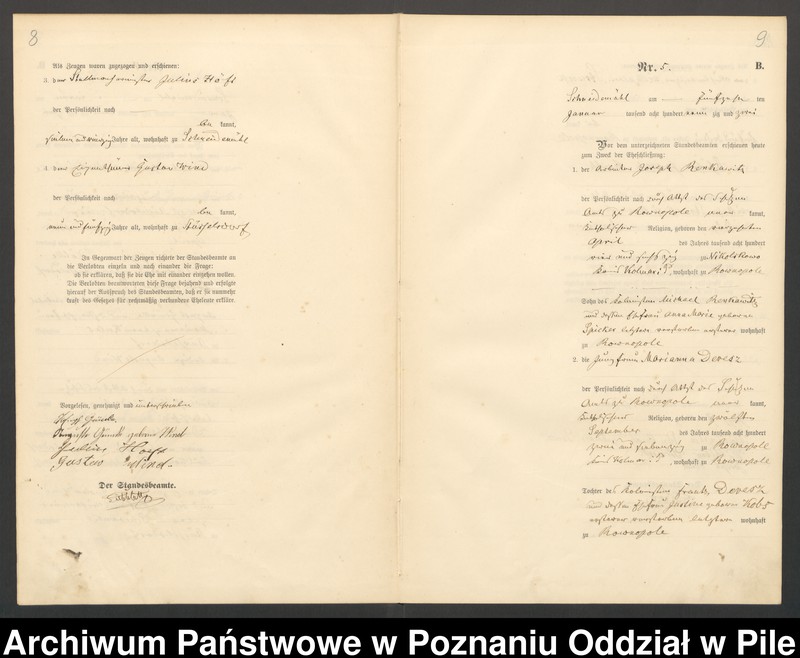 8
B.
Als Zeugen waren zugezogen und erschienen:
3. der Stellmachermeister Julius Höft
der Persönlichkeit nach
be kannt,
Jahre alt, wohnhaft zu Schneidemühl
4. der Eigenthümer Gustav Wind
der Persönlichkeit nach
be kannt,
neun und fünfzig Jahre alt, wohnhaft zu
In Gegenwart der Zeugen richtete der Standesbeamte an
die Verlobten einzeln und nach einander die Frage:
ob sie erklären, daß sie die Ehe mit einander eingehen wollen.
Die Verlobten beantworteten diese Frage bejahend und erfolgte
hierauf der Ausspruch des Standesbeamten, daß er sie nunmehr
kraft des Gesetzes für rechtmäßig verbundene Eheleute erkläre.
Vorgelesen, genehmigt und unterschrieben
geborene Wind
Julius
Gustav Wind
Der Standesbeamte.
9
Nr. 5.
B.
Schneidemühl am fünfzehn ten
Januar tausend acht hundert neun zig und zwei
Vor dem unterzeichneten Standesbeamten erschienen heute
zum Zweck der Eheschließung:
1. der Arbeiter Joseph Renkawitz
der Persönlichkeit nach durch Attest des
Amts zu Rownopole kannt,
katholischer Religion, geboren den vierzehnten
April des Jahres tausend acht hundert
vier und sechs zig zu Nikolskowo
Kreis Kolmar i/P, wohnhaft zu Rownopole
Sohn des Kolonisten Michael Renkawitz
und dessen Ehefrau Anna Marie geborene
Spicker letztere verstorben ersterer wohnhaft
zu Rownopole
2. die Jungfrau Marianna Deresz
der Persönlichkeit nach durch Attest des
Amts zu Rownopole kannt,
katholischer Religion, geboren den zwölften
September des Jahres tausend acht hundert
zwei und siebenzig zu Rownopole
Kreis Kolmar i/P, wohnhaft zu Rownopole
Tochter des Kolonisten Frantz Deresz
und dessen Ehefrau geborene Kobs
ersterer verstorben letztere wohnhaft
zu Rownopole
Archiwum Państwowe w Poznaniu Oddział w Pile